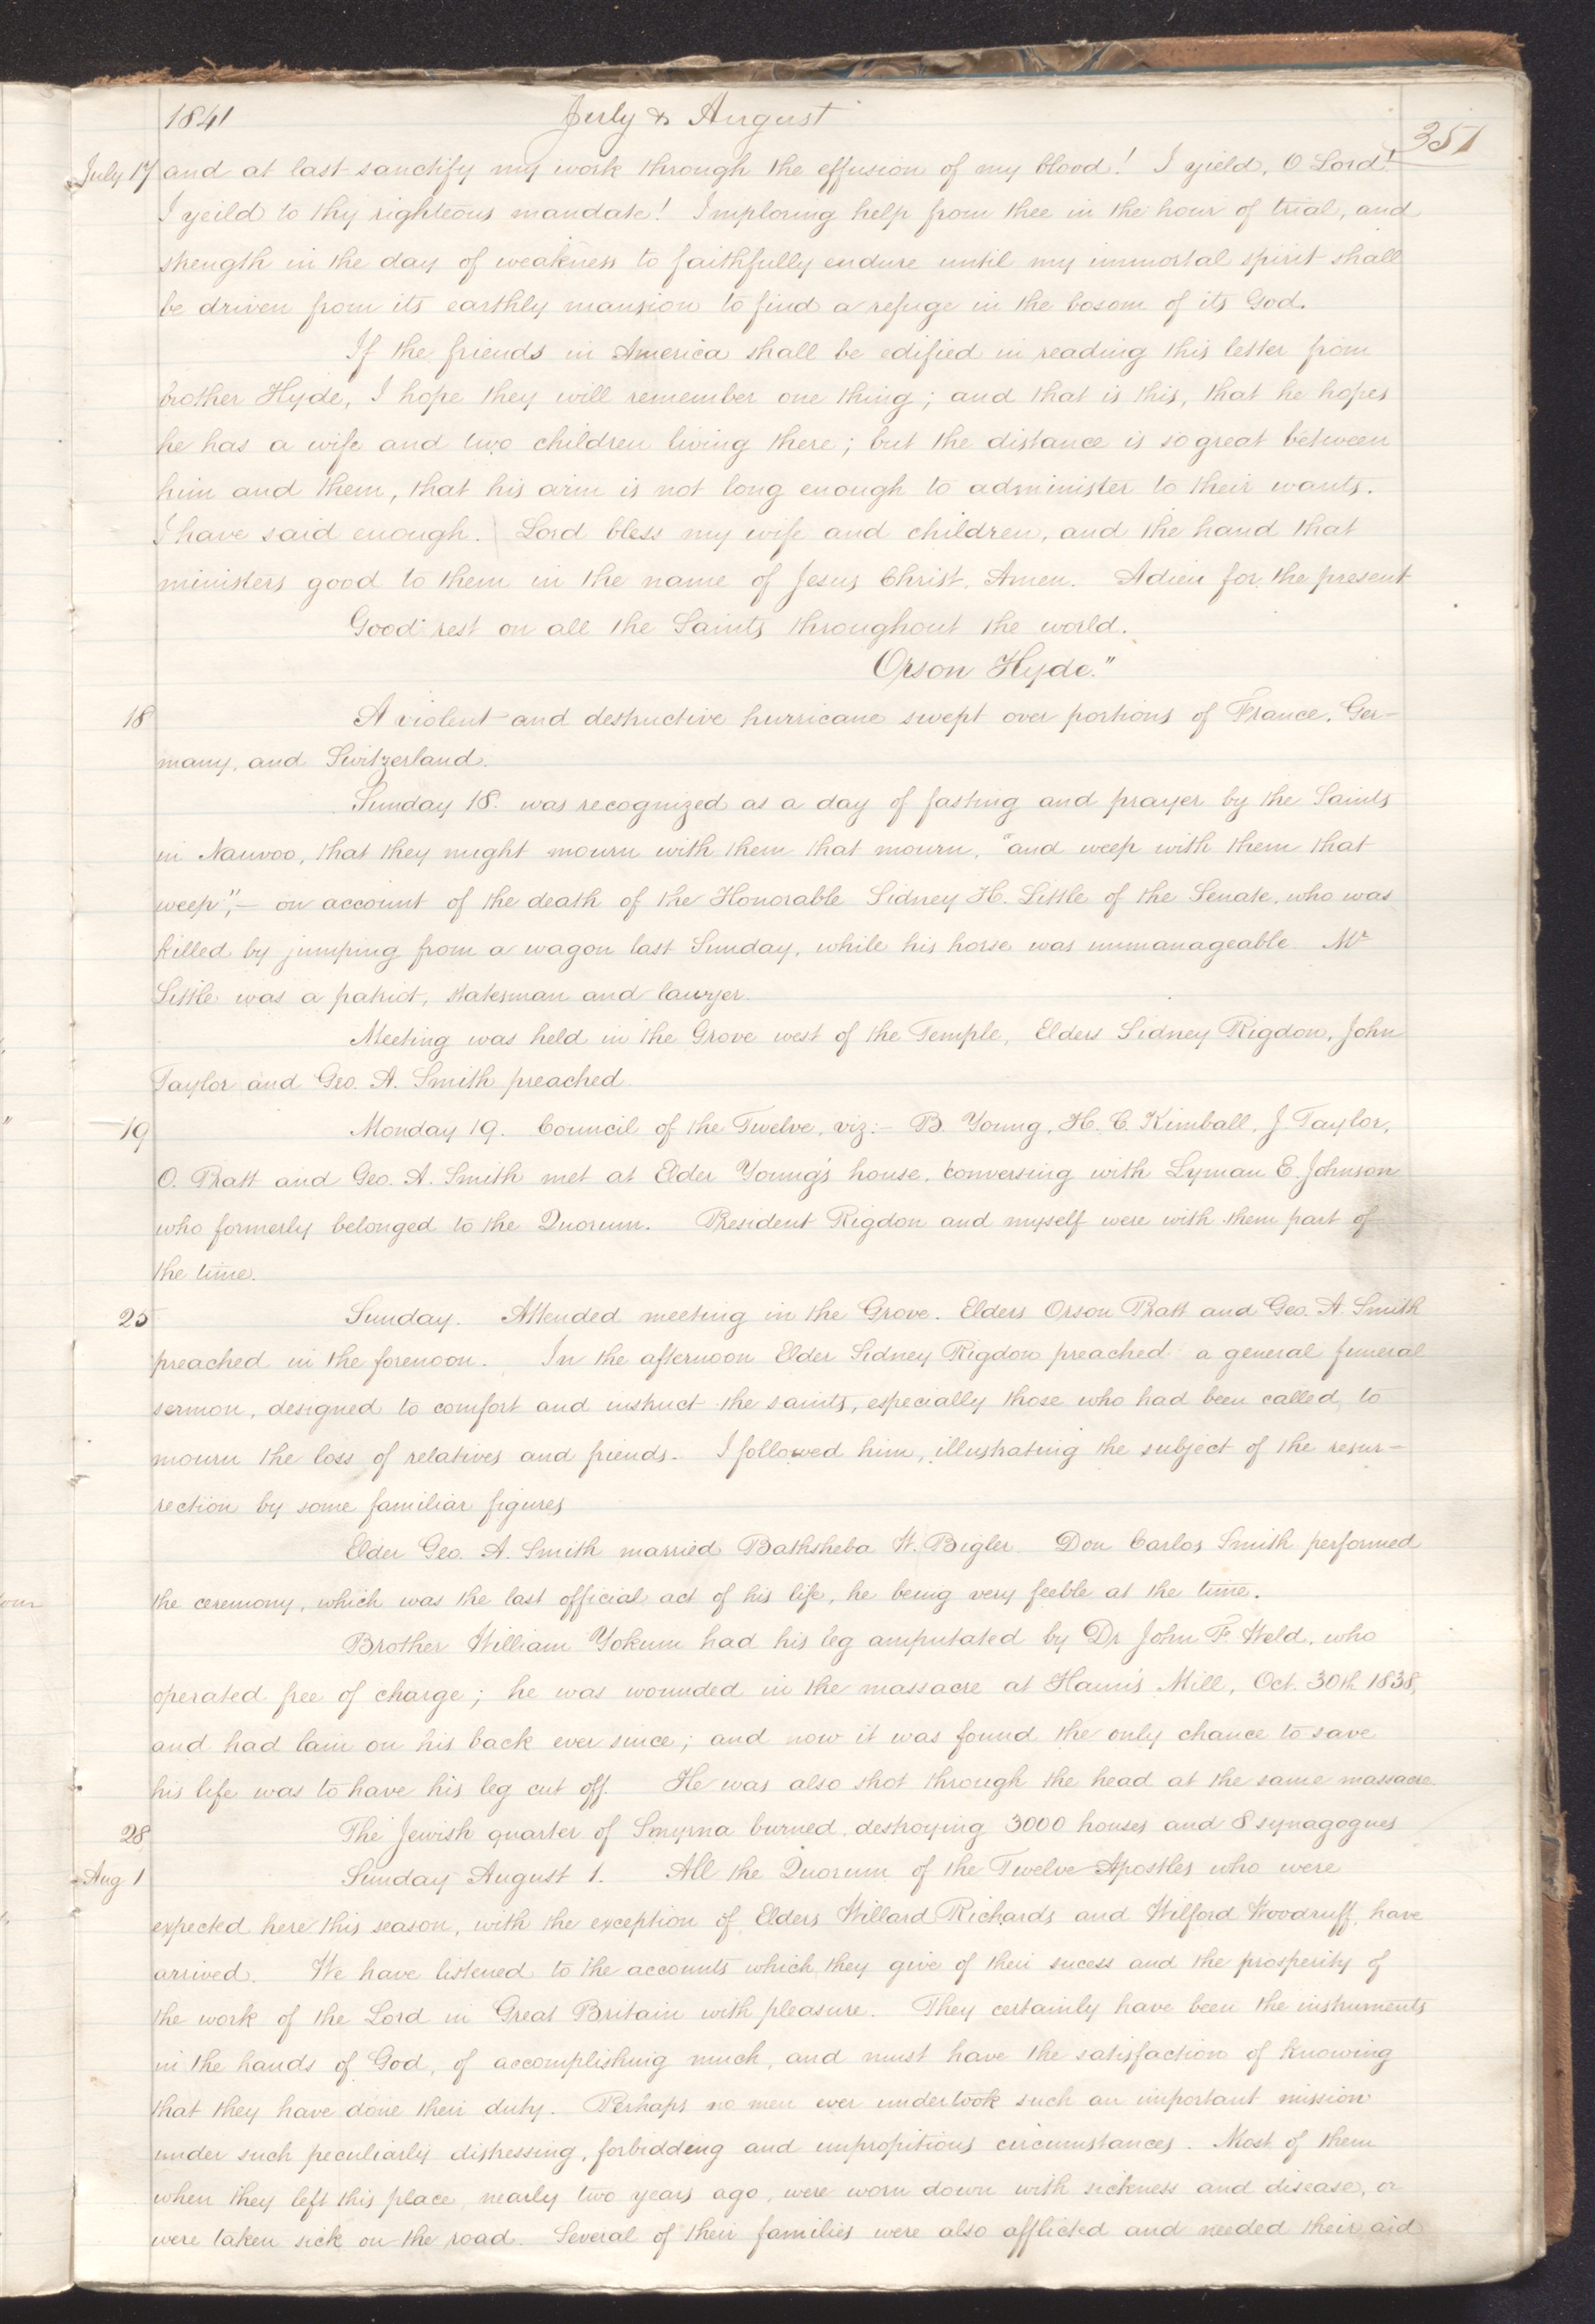 1841 July & August
351
July 17 and at last sanctify my work through the effusion of my blood! I yield, O Lord!
I yeild to thy righteous mandate! Imploring help from thee in the hour of trial, and
strength in the day of weakness to faithfully endure until my immortal spirit shall
be driven from its earthly mansion to find a refuge in the bosom of its God.
If the friends in America shall be edified in reading this letter from
brother Hyde, I hope they will remember one thing; and that is this, that he hopes
he has a wife and two children living there; but the distance is so great between
him and them, that his arm is not long enough to administer to their wants.
I have said enough. Lord bless my wife and children, and the hand that
ministers good to them in the name of Jesus Christ, Amen. Adieu for the present
Good rest on all the Saints throughout the world.
Orson Hyde."
18 A violent and destructive hurricane swept over portions of France, Ger-
many, and Switzerland.
Sunday 18. was recognized as a day of fasting and prayer by the Saints
in Nauvoo, that they might mourn with them that mourn, "and weep with them that
weep",— on account of the death of the Honorable Sidney H. Little of the Senate, who was
killed by jumping from a wagon last Sunday, while his horse was unmanageable. Mr
Little was a patriot, statesman and lawyer.
Meeting was held in the Grove west of the Temple, Elders Sidney Rigdon, John
Taylor and Geo. A. Smith preached
19 Monday 19. Council of the Twelve, viz:— B. Young, H. C. Kimball, J Taylor,
O. Pratt and Geo. A. Smith met at Elder Young's house, conversing with Lyman E. Johnson
who formerly belonged to the Quorum. President Rigdon and myself were with them part of
the time.
25 Sunday. Attended meeting in the Grove. Elders Orson Pratt and Geo. A. Smith
preached in the forenoon. In the afternoon Elder Sidney Rigdon preached a general funeral
sermon, designed to comfort and instruct the saints, especially those who had been called to
mourn the loss of relatives and friends. I followed him, illustrating the subject of the resur-
rection by some familiar figures
Elder Geo. A. Smith married Bathsheba W. Bigler. Don Carlos Smith performed
the ceremony, which was the last official act of his life, he being very feeble at the time.
Brother William Yokum had his leg amputated by Dr John F. Weld, who
operated free of charge; he was wounded in the massacre at Haun's Mill, Oct. 30th 1838,
and had lain on his back ever since; and now it was found the only chance to save
his life was to have his leg cut off. He was also shot through the head at the same massacre.
28 The Jewish quarter of Smyrna burned, destroying 3000 houses and 8 synagogues
Aug 1 Sunday August 1. All the Quorum of the Twelve Apostles who were
expected here this season, with the exception of Elders Willard Richards and Wilford Woodruff, have
arrived. We have listened to the accounts which they give of their sucess and the prosperity of
the work of the Lord in Great Britain with pleasure. They certainly have been the instruments
in the hands of God, of accomplishing much, and must have the satisfaction of knowing
that they have done their duty. Perhaps no men ever undertook such an important mission
under such peculiarly distressing, forbidding and unpropitious circumstances. Most of them
when they left this place, nearly two years ago, were worn down with sickness and disease, or
were taken sick on the road. Several of their families were also afflicted and needed their aid